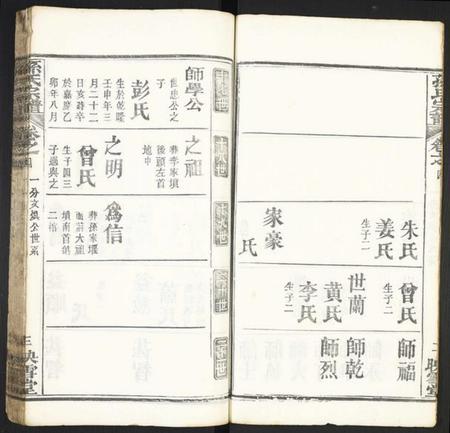 孫氏宗譜
卷之四
二
映雪堂
朱氏
生子二
姜氏
曾氏
生子二
師福
家豪
氏
世蘭
黃氏
李氏
生子二
師乾
師烈
師學公
世忠公之
子
彭氏
生於乾隆
壬申年三
月二十二
日亥時卒
於嘉慶乙
卯年八月
之祖
葬李家墳
後頭左首
地中
之明
曾氏
生子四三
子過與之
為信
葬孫家壩
墳南首
二棺
孫氏宗譜
卷之四
一分文煜公世系
三
映雪堂